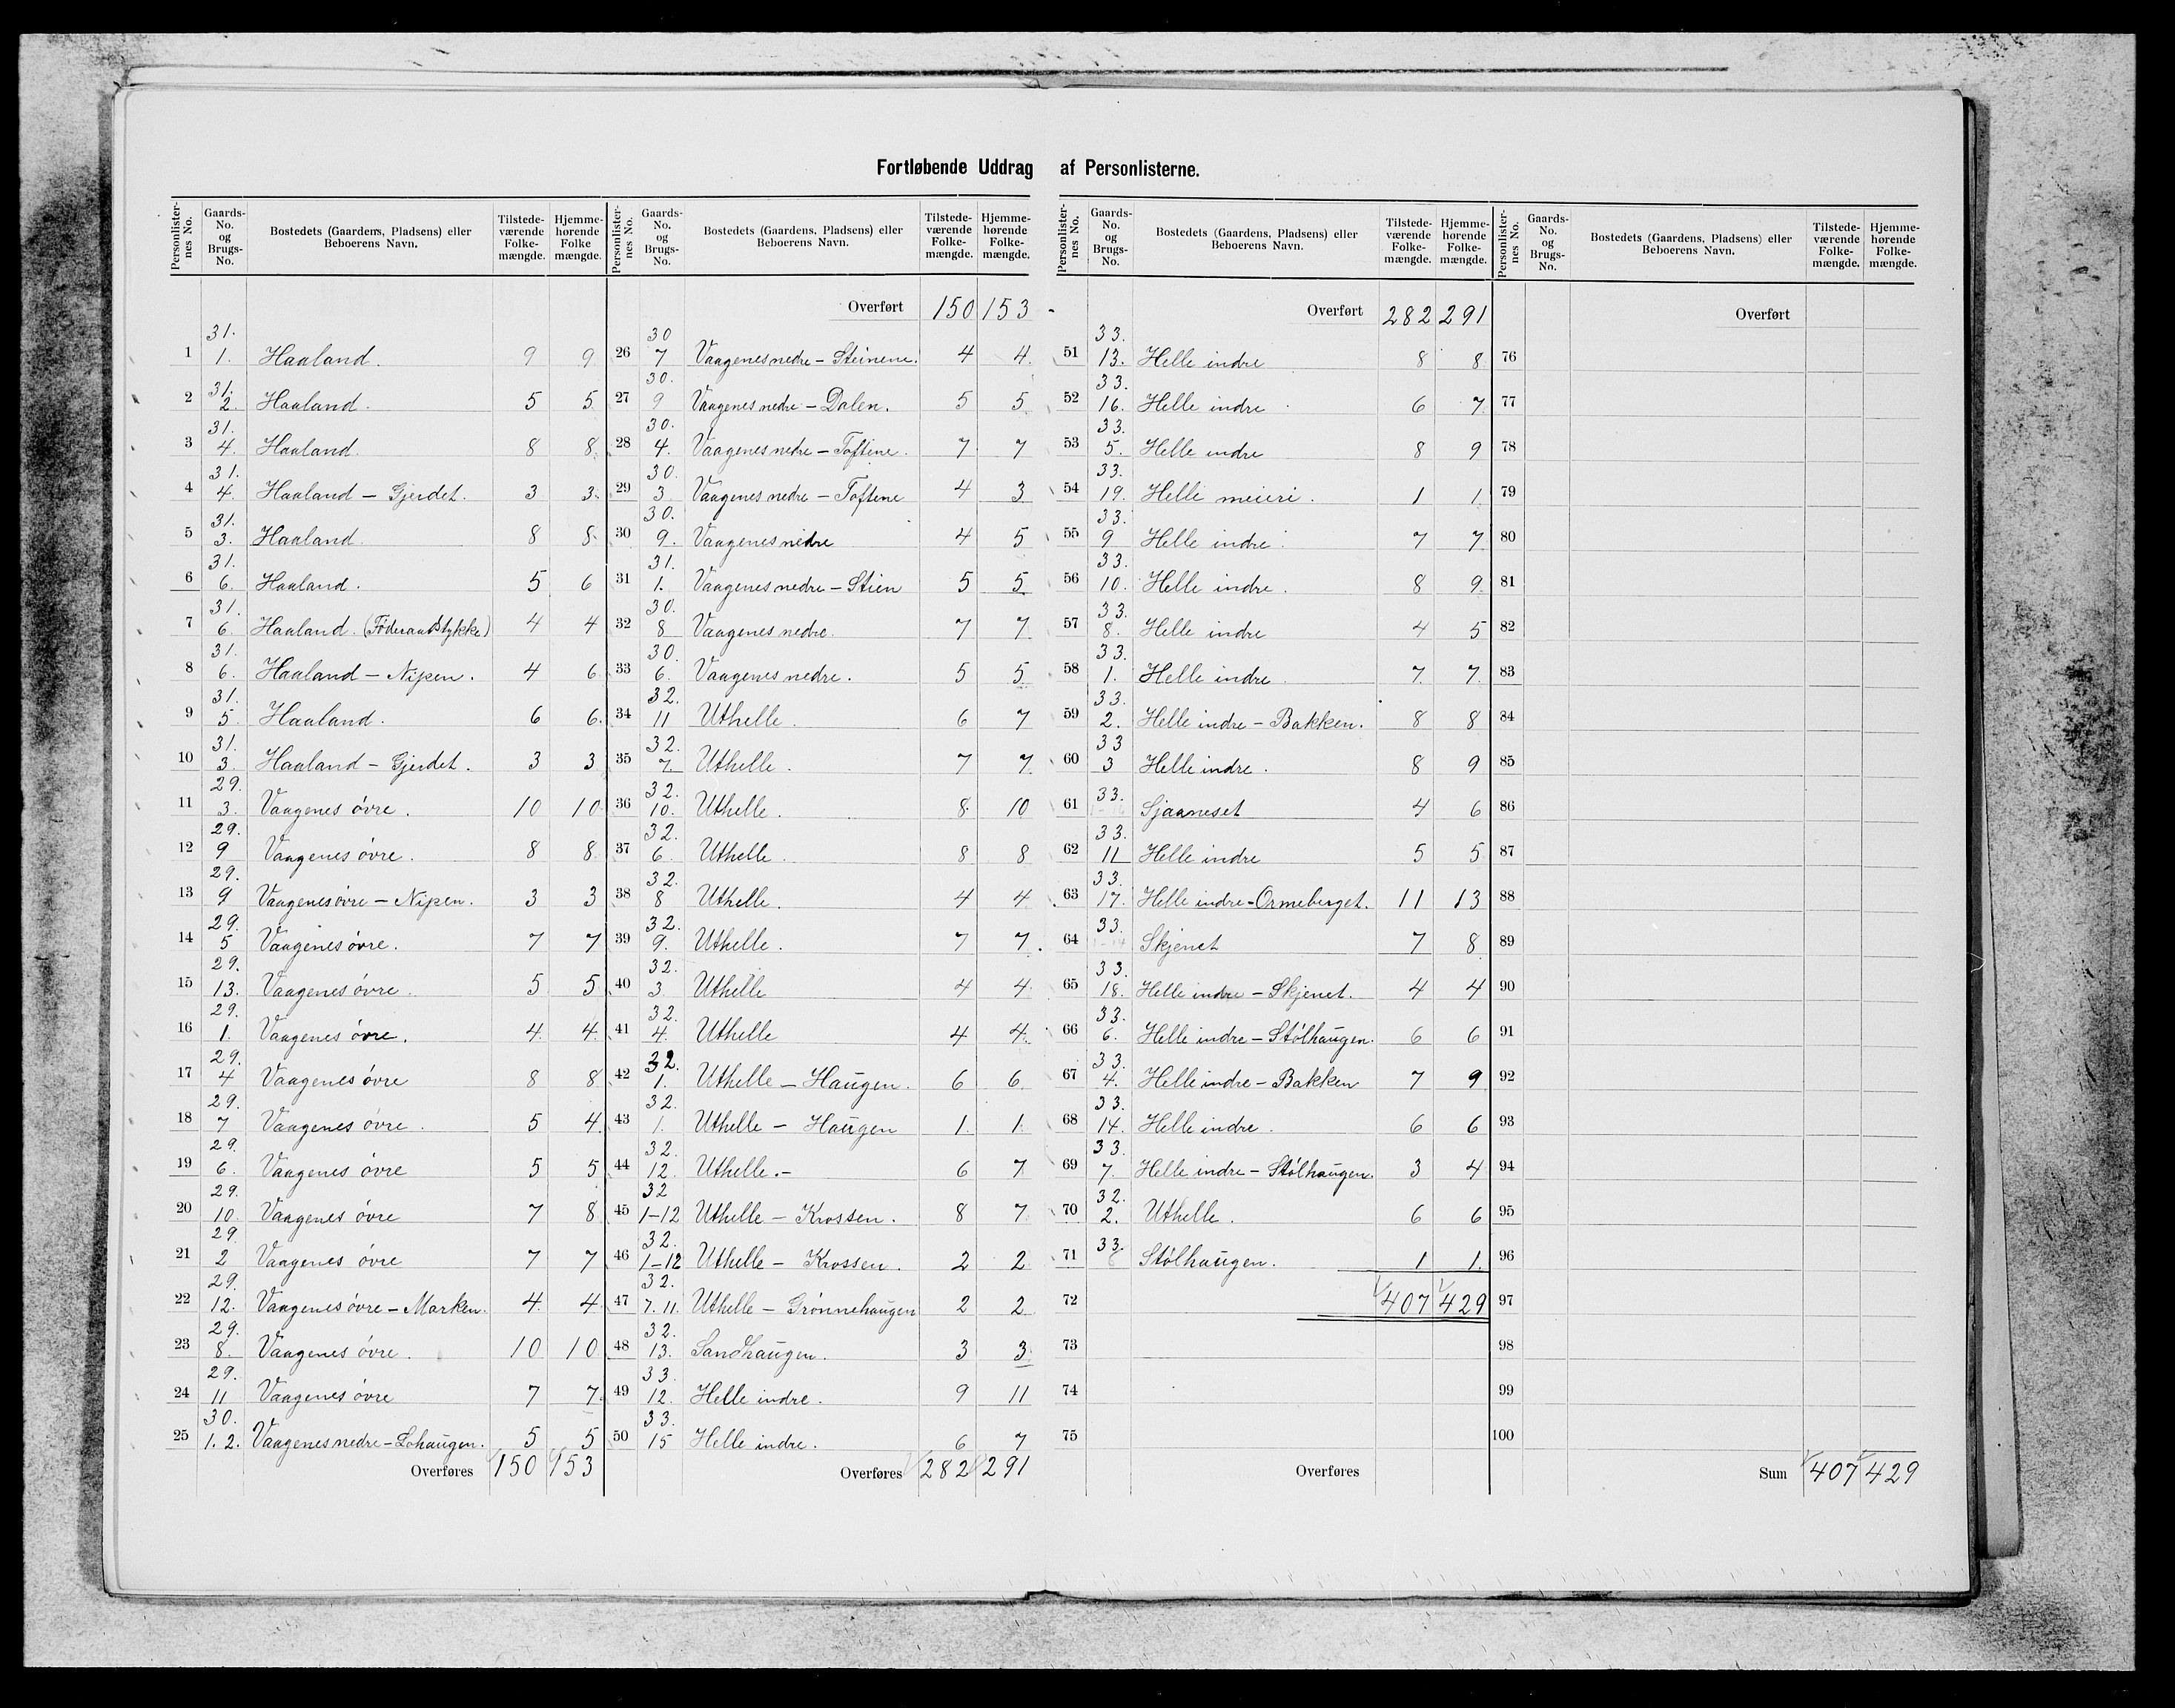 Fortløbende Uddrag af Personlisterne.
Personlister-nes No. | Gaards-No. og Brugs-No. | Bostedets (Gaardens, Pladsens) eller Beboerens Navn. | Tilstede-værende Folke-mængde. | Hjemme-hørende Folke mængde.
1 | 31. 1. | Haaland. | 9 | 9
2 | 31. 2. | Haaland. | 5 | 5
3 | 31. 4. | Haaland. | 8 | 8
4 | 31. 4. | Haaland – Gjerdet. | 3 | 3
5 | 31. 3. | Haaland. | 8 | 8
6 | 31. 6. | Haaland. | 5 | 6
7 | 31. 6. | Haaland. (Føderaadstykke) | 4 | 4
8 | 31. 6. | Haaland – Nipen. | 4 | 6
9 | 31. 5. | Haaland. | 6 | 6.
10 | 31. 3. | Haaland – Gjerdet. | 3 | 3
11 | 29. 3. | Vaagenes øvre. | 10 | 10
12 | 29. 9 | Vaagenes øvre. | 8 | 8
13 | 29. 9 | Vaagenes øvre – Nipen. | 3 | 3
14 | 29. 5 | Vaagenes øvre. | 7 | 7
15 | 29. 13. | Vaagenes øvre. | 5 | 5
16 | 29. 1. | Vaagenes øvre. | 4 | 4
17 | 29. 4 | Vaagenes øvre | 8 | 8
18 | 29. 7 | Vaagenes øvre. | 5 | 4
19 | 29. 6. | Vaagenes øvre | 5 | 5
20 | 29. 10. | Vaagenes øvre | 7 | 8
21 | 29 2 | Vaagenes øvre | 7 | 7
22 | 29. 12. | Vaagenes øvre – Marken. | 4 | 4
23 | 29. 8. | Vaagenes øvre. | 10 | 10
24 | 29. 11 | Vaagenes øvre | 7 | 7
25 | 30. 1. 2. | Vaagenes nedre – Lohaugen. | 5 | 5
Overføres 150 153
Personlister-nes No. | Gaards-No. og Brugs-No. | Bostedets (Gaardens, Pladsens) eller Beboerens Navn. | Tilstede-værende Folke-mængde. | Hjemme-hørende Folke-mængde.
Overført 150 153
26 | 30 7 | Vaagenes nedre – Steinene. | 4 | 4
27 | 30. 9 | Vaagenes nedre – Dalen. | 5 | 5
28 | 30. 4. | Vaagenes nedre – Toftene. | 7 | 7
29 | 30. 3 | Vaagenes nedre – Toftene | 4 | 3
30 | 30. 9. | Vaagenes nedre | 4 | 5
31 | 31. 1. | Vaagenes nedre – Stien | 5 | 5
32 | 30. 8 | Vaagenes nedre. | 7 | 7
33 | 30. 6. | Vaagenes nedre. | 5 | 5
34 | 32. 11 | Uthelle. | 6 | 7
35 | 32. 7 | Uthelle. | 7 | 7
36 | 32. 10. | Uthelle. | 8 | 10
37 | 32. 6. | Uthelle. | 8 | 8
38 | 32. 8 | Uthelle. | 4 | 4
39 | 32. 9. | Uthelle. | 7 | 7
40 | 32. 3 | Uthelle | 4 | 4
41 | 32. 4. | Uthelle | 4 | 4
42 | 32. 1. | Uthelle – Haugen. | 6 | 6
43 | 32. 1. | Uthelle – Haugen | 1 | 1
44 | 32. 12. | Uthelle. – | 6 | 7
45 | 32 1–12 | Uthelle – Krossen. | 8 | 7
46 | 32. 1–12 | Uthelle – Krossen. | 2 | 2
47 | 32. 7. 11. | Uthelle – Grønnehaugen | 2 | 2
48 | 32. 13. | Sandhaugen. | 3 | 3
49 | 33. 12. | Helle indre. | 9 | 11
50 | 33. 15 | Helle indre. | 6 | 7
Overføres 282 291
Personlister-nes No. | Gaards-No. og Brugs-No. | Bostedets (Gaardens, Pladsens) eller Beboerens Navn. | Tilstede-værende Folke-mængde. | Hjemme-hørende Folke-mængde.
Overført 282 291
51 | 33. 13. | Helle indre | 8 | 8
52 | 33. 16. | Helle indre | 6 | 7
53 | 33. 5. | Helle indre | 8 | 9
54 | 33. 19. | Helle meieri. | 1 | 1
55 | 33. 9 | Helle indre. | 7 | 7
56 | 33. 10. | Helle indre. | 8 | 9
57 | 33. 8. | Helle indre | 4 | 5
58 | 33. 1. | Helle indre | 7 | 7
59 | 33. 2. | Helle indre – Bakken. | 8 | 8
60 | 33 3 | Helle indre. | 8 | 9
61 | 33. | Sjaaneset | 4 | 6
62 | 33. 11 | Helle indre | 5 | 5
63 | 33. 17. | Helle indre – Ormeberget. | 11 | 13
64 | 33. | Skjenet | 7 | 8
65 | 33. 18. | Helle indre – Skjenet. | 4 | 4
66 | 33. 6. | Helle indre – Stølhaugen. | 6 | 6
67 | 33. 4. | Helle indre – Bakken | 7 | 9
68 | 33. 14. | Helle indre. | 6 | 6
69 | 33. 7. | Helle indre – Stølhaugen. | 3 | 4
70 | 32. 2. | Uthelle. | 6 | 6
71 | 33. | Stølhaugen. | 1 | 1.
72 | 407 | 429
73
74
75
Overføres
Personlister-nes No. | Gaards-No. og Brugs-No. | Bostedets (Gaardens, Pladsens) eller Beboerens Navn. | Tilstede-værende Folke-mængde. | Hjemme-hørende Folke-mængde.
Overført
76
77
78
79
80
81
82
83
84
85
86
87
88
89
90
91
92
93
94
95
96
97
98
99
100
Sum 407 429